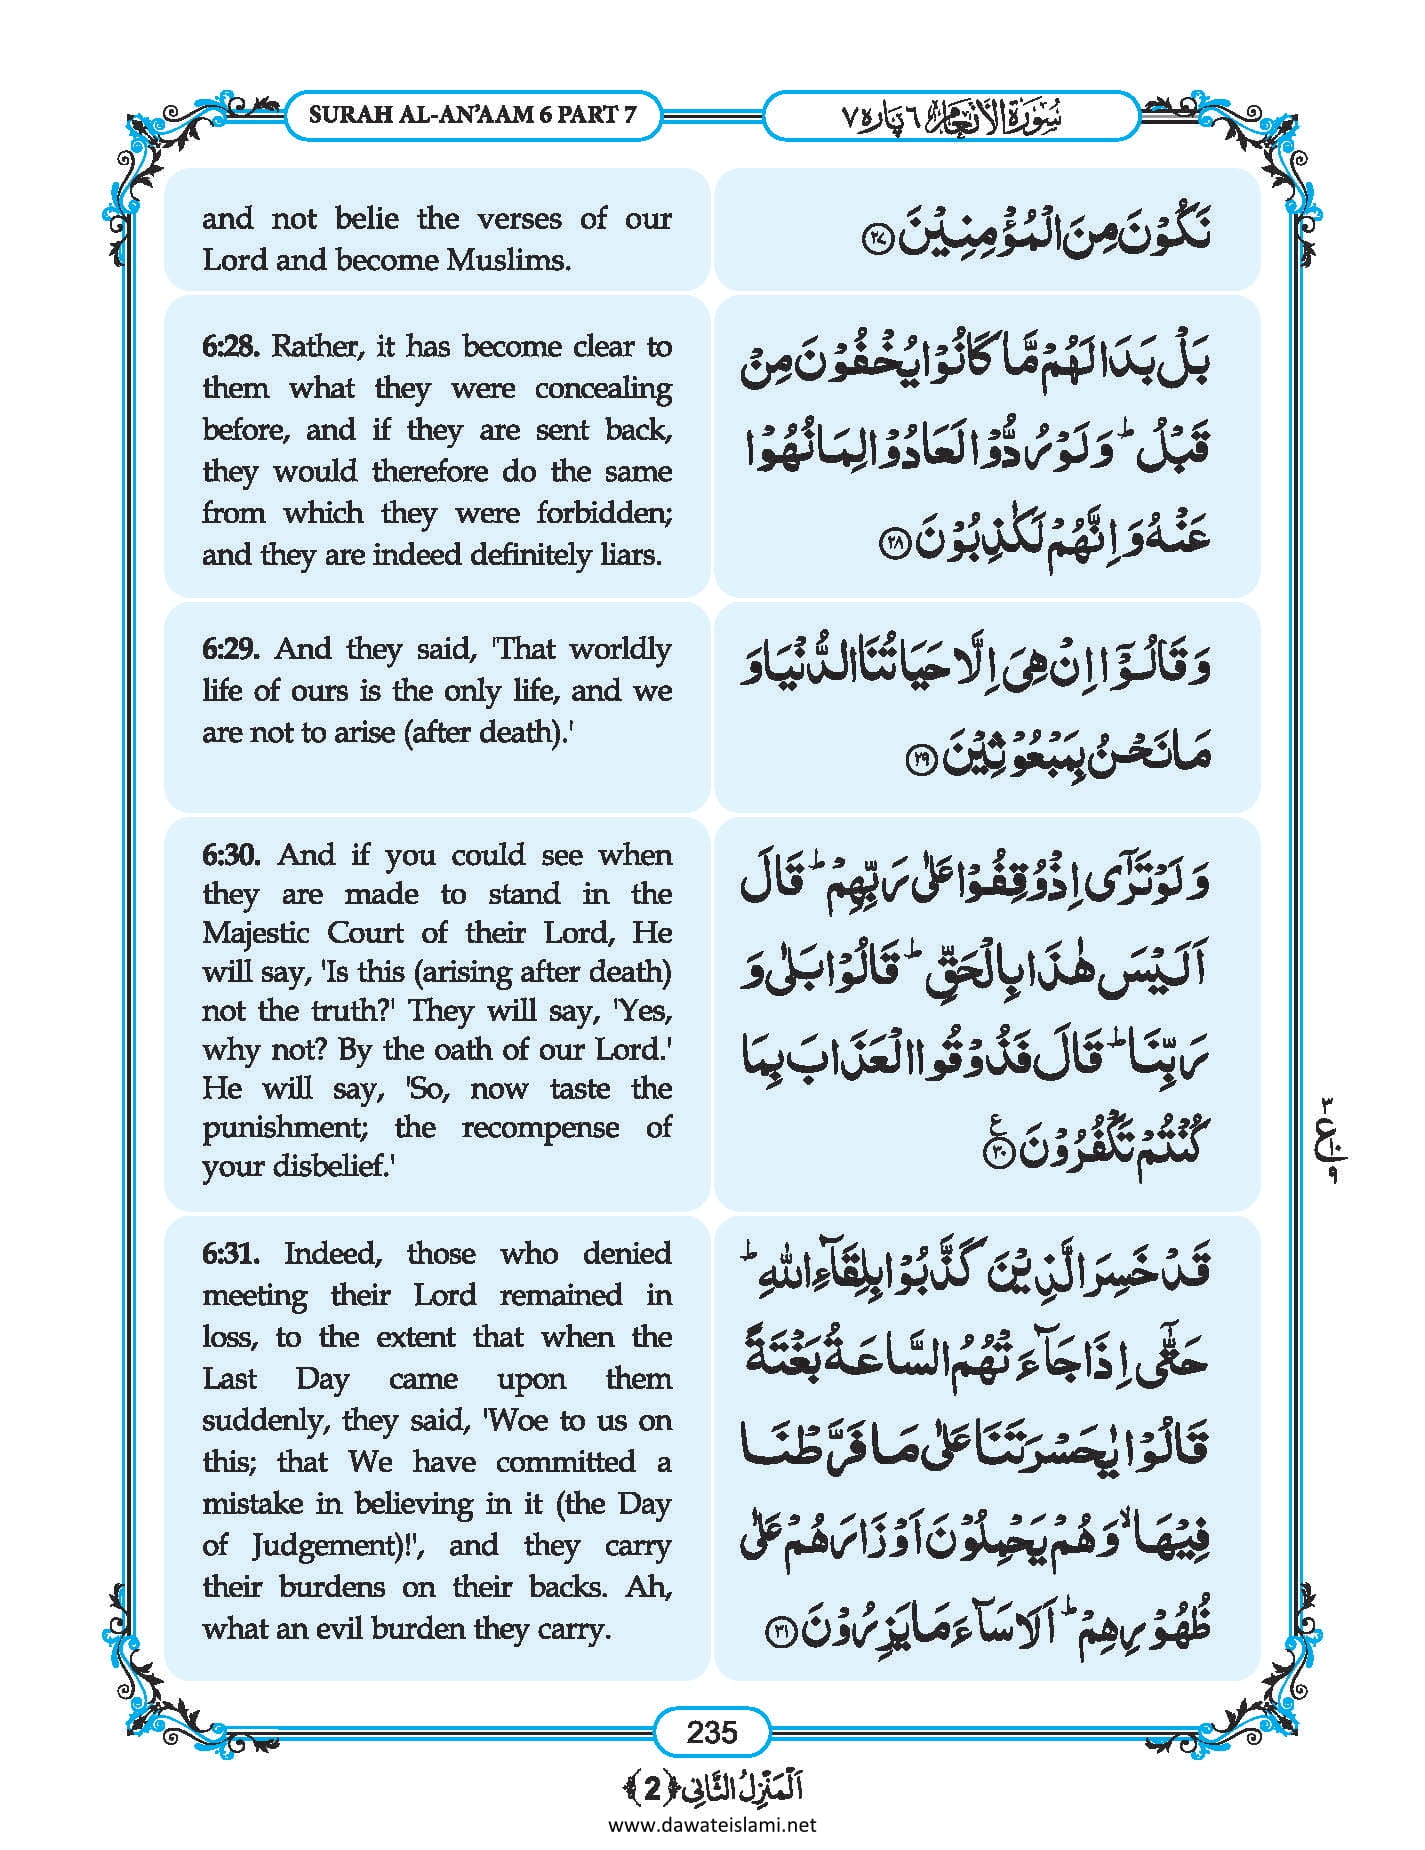 SURAH AL-AN’AAM 6 PART 7
سُوْرَۃُ الْاَنْعَام ٦ پارہ ٧
and not belie the verses of our
Lord and become Muslims.
نَكُوْنَ مِنَ الْمُؤْمِنِيْنَ ﴿۲۷﴾
6:28. Rather, it has become clear to
them what they were concealing
before, and if they are sent back,
they would therefore do the same
from which they were forbidden;
and they are indeed definitely liars.
بَلْ بَدَا لَهُمْ مَّا كَانُوْا يُخْفُوْنَ مِنْ
قَبْلُ ؕ وَلَوْ رُدُّوْا لَعَادُوْا لِمَا نُهُوْا
عَنْهُ وَ اِنَّهُمْ لَكٰذِبُوْنَ ﴿۲۸﴾
6:29. And they said, 'That worldly
life of ours is the only life, and we
are not to arise (after death).'
وَ قَالُوْۤا اِنْ هِیَ اِلَّا حَیَاتُنَا الدُّنْیَا وَ
مَا نَحْنُ بِمَبْعُوْثِيْنَ ﴿۲۹﴾
6:30. And if you could see when
they are made to stand in the
Majestic Court of their Lord, He
will say, 'Is this (arising after death)
not the truth?' They will say, 'Yes,
why not? By the oath of our Lord.'
He will say, 'So, now taste the
punishment; the recompense of
your disbelief.'
وَ لَوْ تَرٰۤی اِذْ وُقِفُوْا عَلٰی رَبِّهِمْ ؕ قَالَ
اَلَيْسَ هٰذَا بِالْحَقِّ ؕ قَالُوْا بَلٰی وَ
رَبِّنَا ؕ قَالَ فَذُوْقُوا الْعَذَابَ بِمَا
كُنْتُمْ تَكْفُرُوْنَ ﴿۳۰﴾ ع
٣
ع ١٠
٩
6:31. Indeed, those who denied
meeting their Lord remained in
loss, to the extent that when the
Last Day came upon them
suddenly, they said, 'Woe to us on
this; that We have committed a
mistake in believing in it (the Day
of Judgement)!', and they carry
their burdens on their backs. Ah,
what an evil burden they carry.
قَدْ خَسِرَ الَّذِيْنَ كَذَّبُوْا بِلِقَآءِ اللّٰهِ ؕ
حَتّٰۤی اِذَا جَآءَتْهُمُ السَّاعَةُ بَغْتَةً
قَالُوْا يٰحَسْرَتَنَا عَلٰی مَا فَرَّطْنَا
فِيْهَا ۙ وَ هُمْ يَحْمِلُوْنَ اَوْزَارَهُمْ عَلٰی
ظُهُوْرِهِمْ ؕ اَلَا سَآءَ مَا يَزِرُوْنَ ﴿۳۱﴾
235
اَلْمَنْزِلُ الثَّانِی ﴿2﴾
www.dawateislami.net